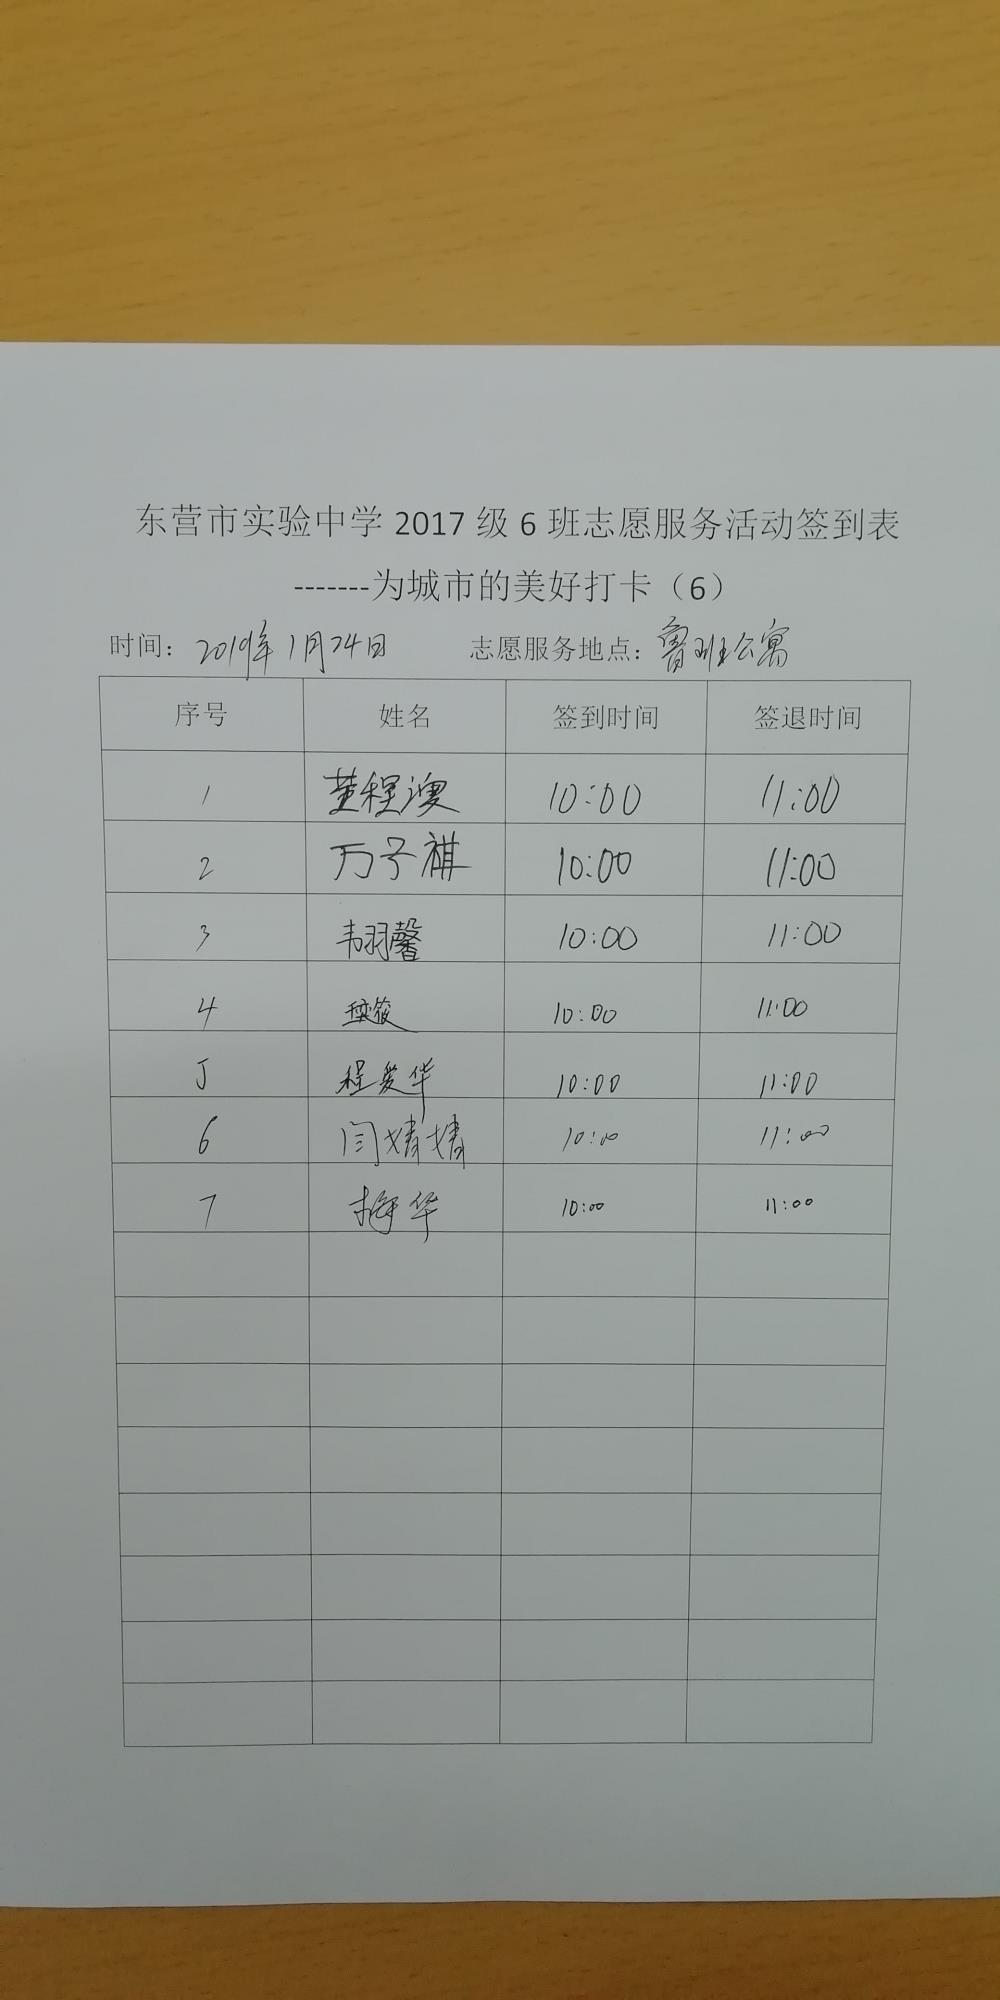 东营市实验中学 2017 级 6 班志愿服务活动签到表
-------为城市的美好打卡（6）
时间：2019年1月24日 志愿服务地点：鲁班公寓
序号 姓名 签到时间 签退时间
1 董程溲 10:00 11:00
2 万子祺 10:00 11:00
3 韦羽馨 10:00 11:00
4 10:00 11:00
5 程爱华 10:00 11:00
6 闫婧婧 10:00 11:00
7 梅华 10:00 11:00